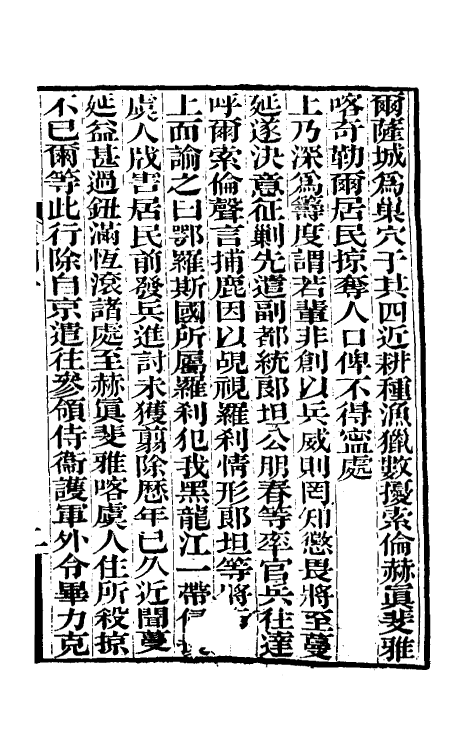 爾薩城爲巢穴于其四近耕種漁獵數擾索倫赫眞斐雅
喀奇勒爾居民掠奪人口俾不得寧處
上乃深爲籌度謂若輩非創以兵威則罔知懲畏將至蔓
延遂決意征剿先遣副都統郎坦公朋春等率官兵往達
呼爾索倫聲言捕鹿因以覘視羅刹情形郎坦等將
上面諭之曰鄂羅斯國所屬羅刹犯我黑龍江一帶侵
虞人戕害居民前發兵進討未獲翦除歷年已久近聞蔓
延益甚過鈕滿恆滾諸處至赫眞斐雅喀虞人住所殺掠
不已爾等此行除自京遣往參領侍衞護軍外令畢力克